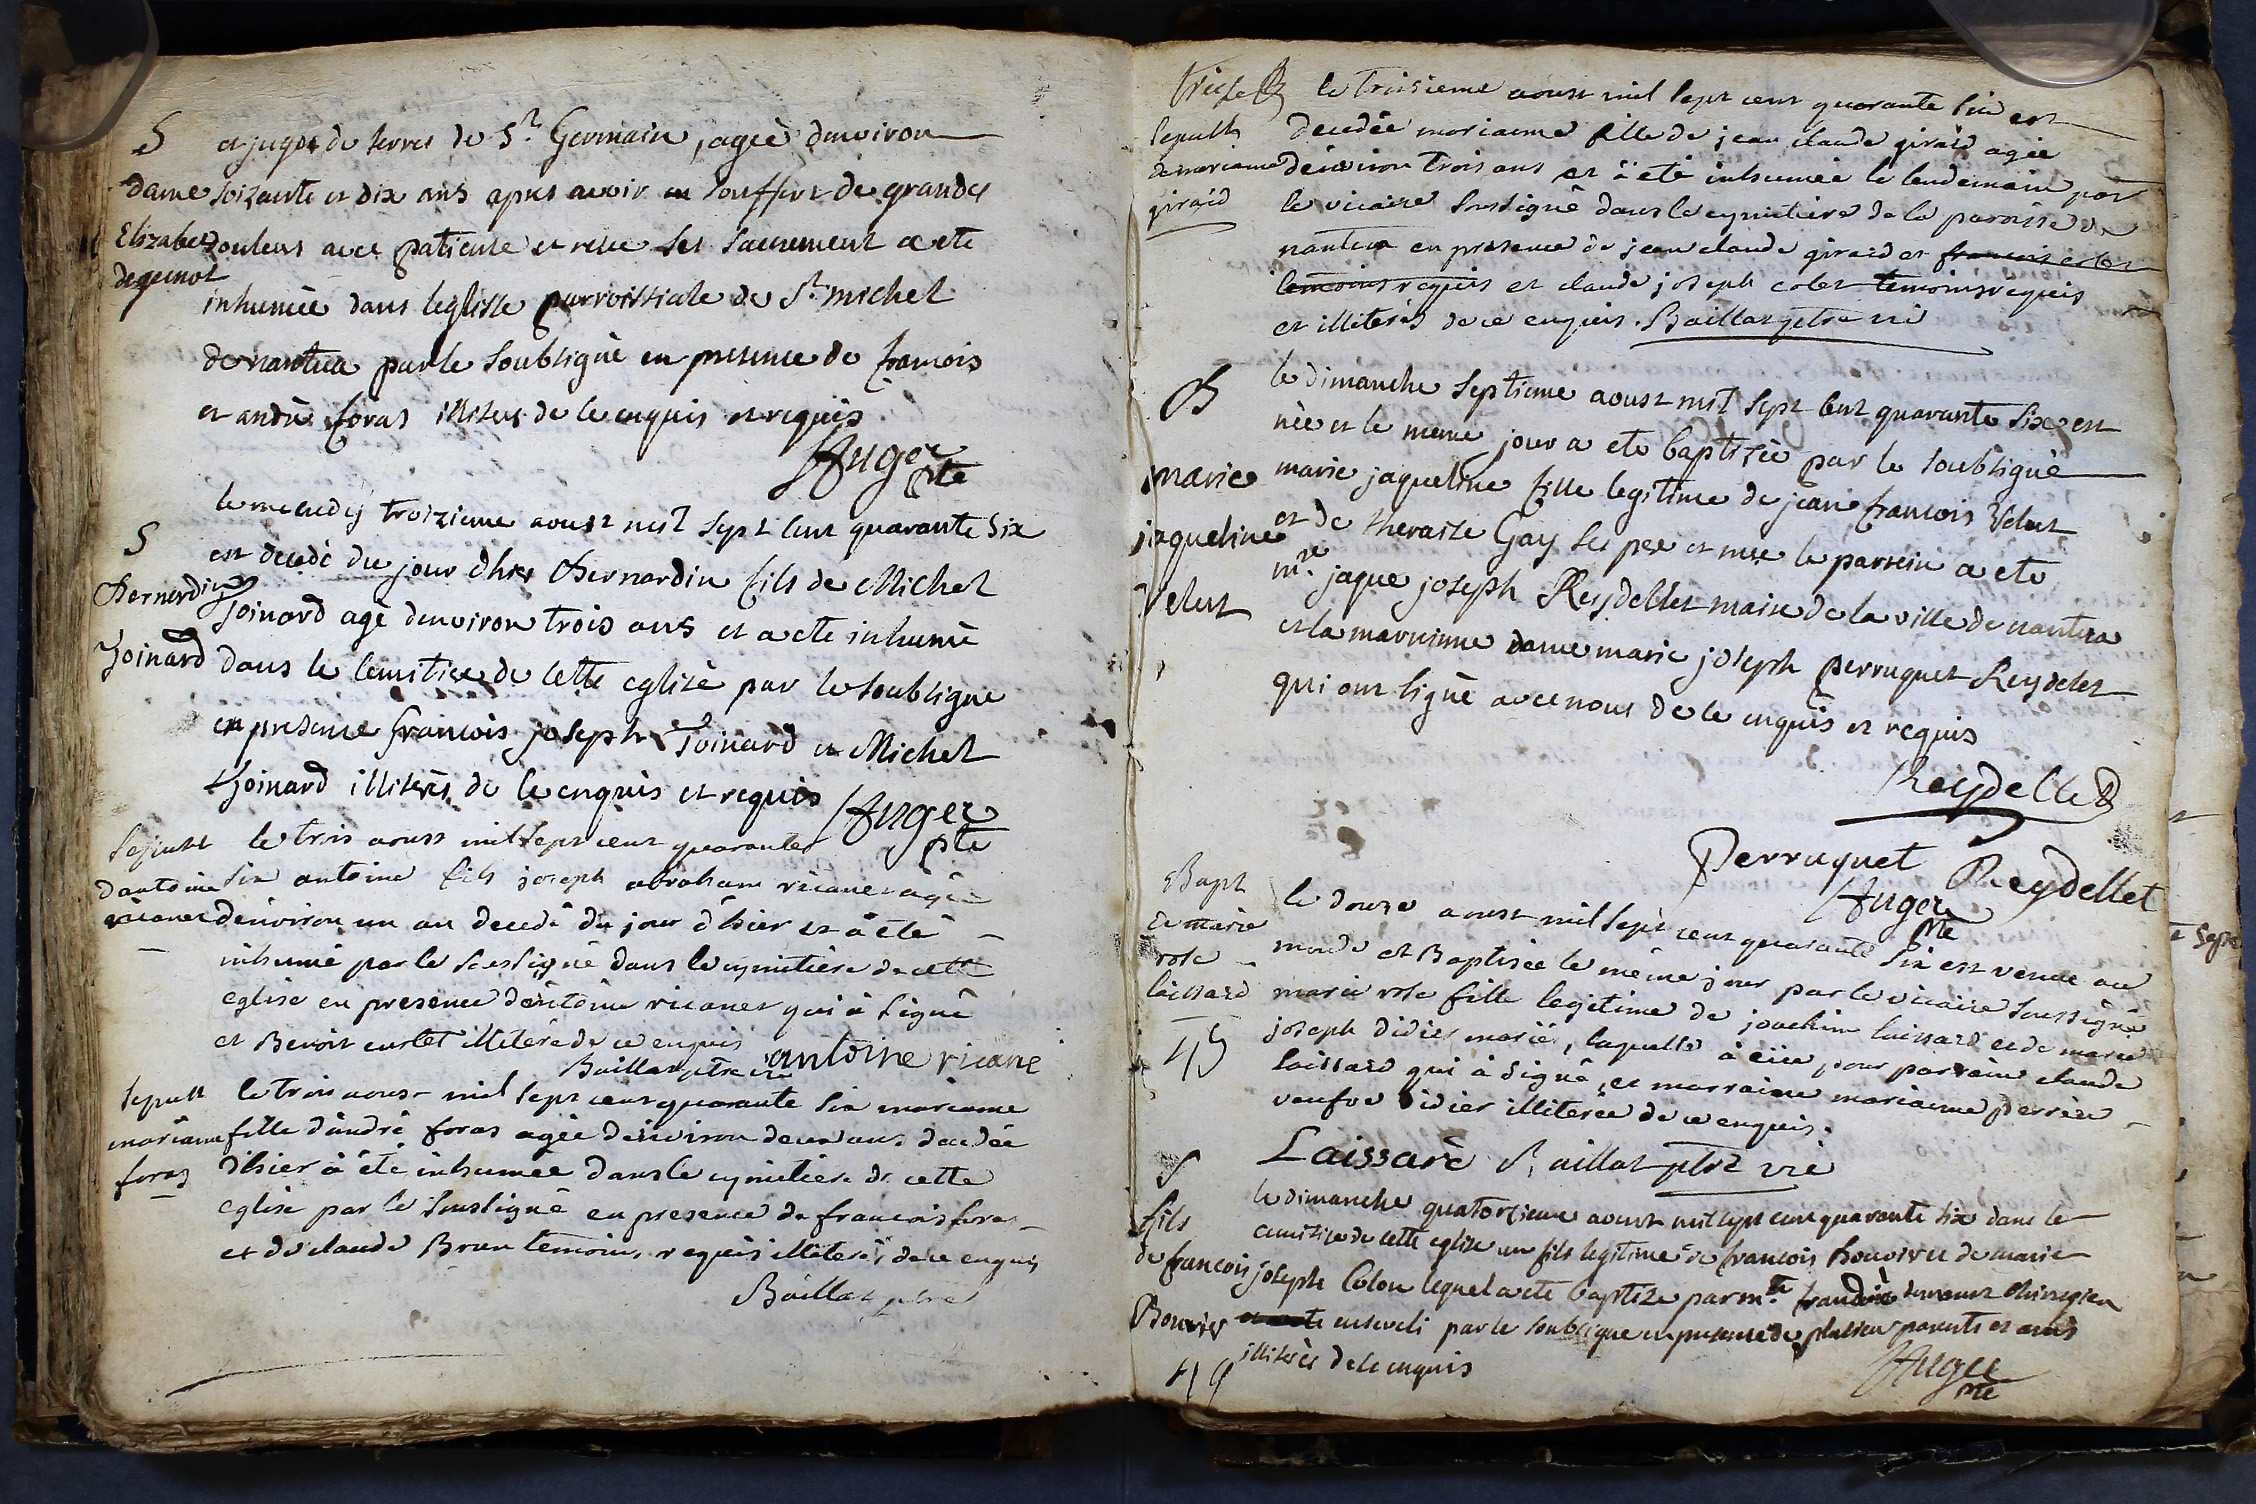 S
dame
Elizabet
dequinot
et juge de terres de St Germain, agée denviron
soizante et dix ans apres avoir souffert de grandes
douleurs avec patience et receu ses sacrement a ete
inhumée dans leglisse parroissiale de St michel
de nantua par le soubsigné en presence de francois
et andré foras illiteres de ce enquis et requis
Auger
ptre
S
Bernardin
Joinard
le mecredy troizieme aoust mil sept cent quarante six
est decedé du jour dhier Bernardin fils de Michel
Joinard agé denviron trois ans et a ete inhumé
dans le cemitiere de cette eglize par le soubsigne
en presence francois joseph Joinard et Michel
Joinard illiterés de ce enquis et requis
Auger
ptre
Sepult
dantoine
ricanet
le trois aoust mil sept cent quarante
six antoine fils joseph abraham ricanet agé
denviron un an decedé du jour d'hier et à été
inhumé par le soussigné dans le cymitiere de cette
eglise en presence d'antoine ricanet qui à signé
et Benoit curtet illiteré de ce enquis
Baillat ptre vic antoine ricane
sepult
mariame
foras
le trois aoust mil sept cent quarante six mariame
fille d'andré foras agée denviron deux ans decedée
d'hier à été inhumée dans le cymitiere de cette
eglise par le soussigné en presence de francois foras
et de claude Brun temoins requis illiterés de ce enquis
Baillat ptre
sepult
de mariame
giraid
le troisieme aoust mil sept cent quarante six est
decedée mariame fille de jean claude giraid agée
denviron trois ans et à été inhumée le lendemain par
le vicaire soussigné dans le cymitiere de la paroisse de
nantua en presence de jean claude giraid et francois colet
temoins requis et claude joseph colet temoins requis
et illiterés de ce enquis. Baillat ptre vic
B
marie
jaqueline
Velut
le dimanche septieme aoust mil sept cent quarante six est
née et le meme jour a ete baptizée par le soubsigné
marie jaqueline fille legitime de jean francois Velut
et de theraize Gay ses pere et mere le parrein a ete
mre jaque joseph Reydellet maire de la ville de nantua
et la marreinne dame marie joseph perruquet Reydelet
qui ont signé avec nous de ce enquis et requis
Reydellet
Perruquet Reydellet
Auger
ptre
Bapt
de marie
rose
laissard
le douze aoust mil sept cent quarante six est venue au
monde et Baptisée le même jour par le vicaire soussigné
marie rose fille legitime de joachim laissard et de marie
joseph didier mariés, laquelle à eüe pour parrain claude
laissard qui à signé, et marraine mariame perrin
veufve didier illiterée de ce enquis.
Laissard Baillat ptre vic
S
fils
de francois
Bouvier
le dimanche quatorzieme aoust mil sept cent quarante six dans le
cemitiere de cette eglize un fils legitime de francois bouvier et de marie
joseph Colon lequel a ete baptize par mre chirurgien
enseveli par le soubsigne en presence de plusieur parents et amis
illiterés de ce enquis
Auger
ptre